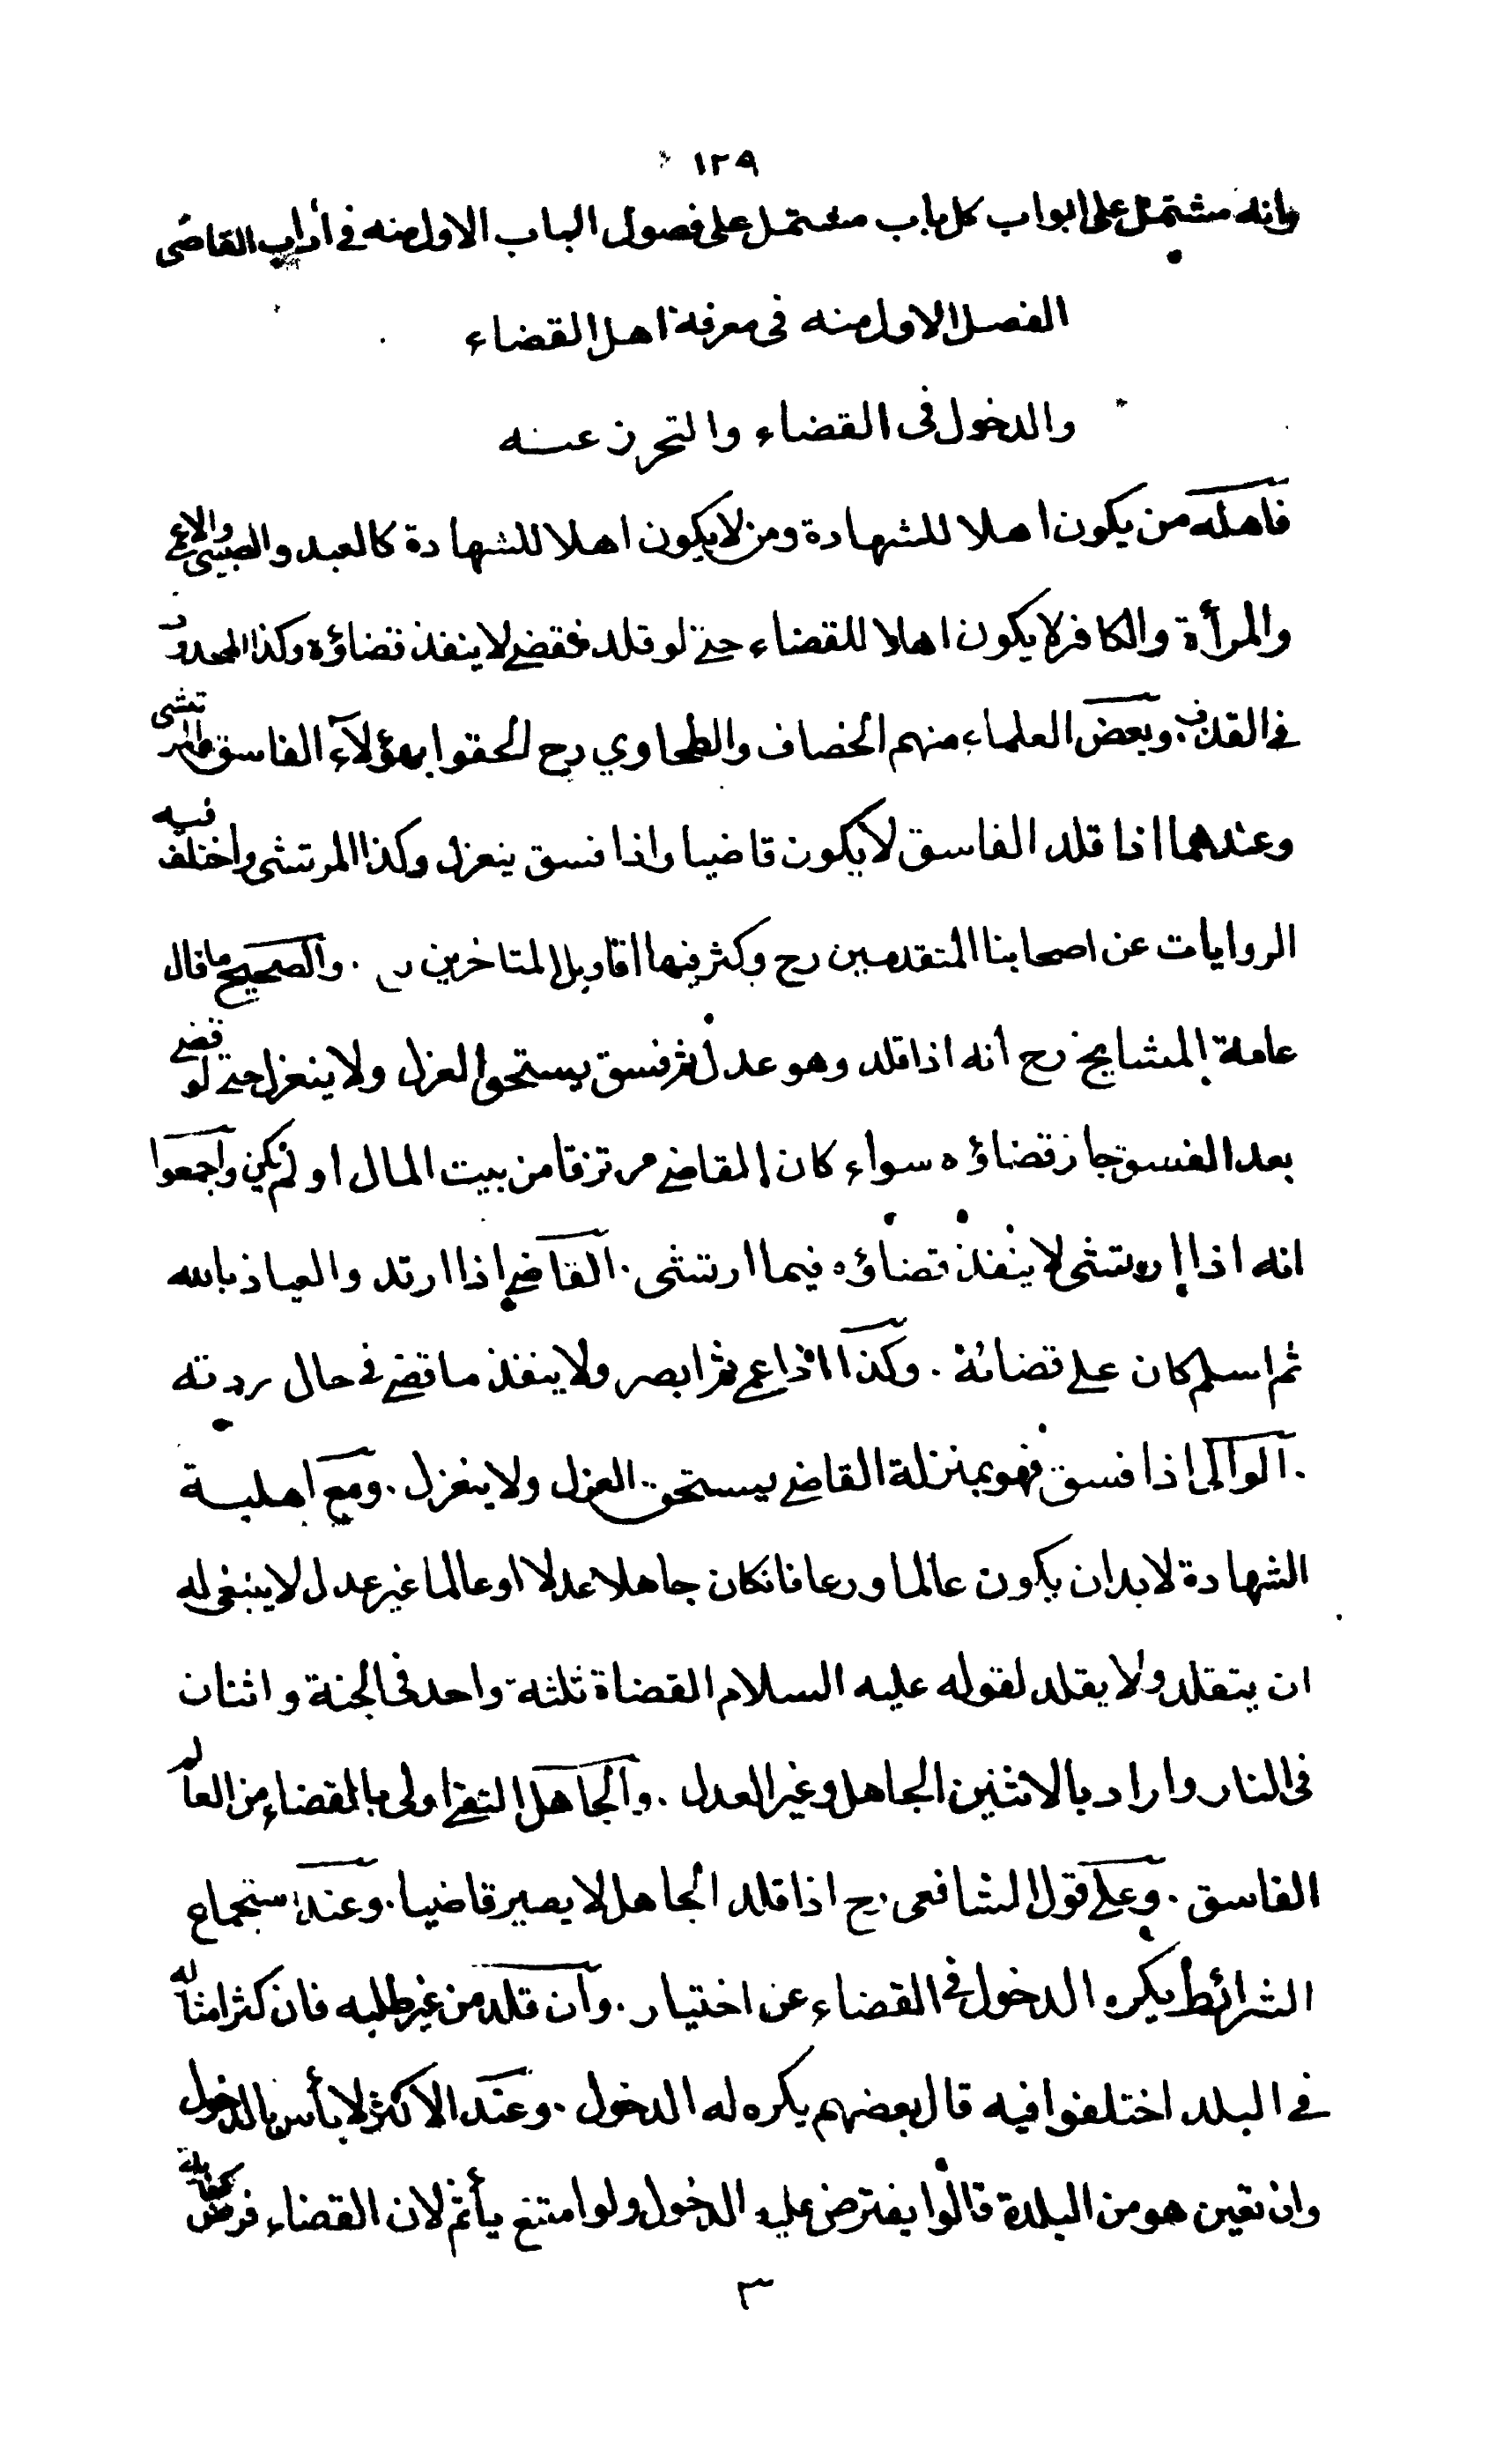 ١٢٩
وانه مشتمل على ابواب كل باب مشتمل على فصول الباب الاول منه في أداب القاضى
الفصل الاول منه فى معرفة اهل القضاء
والدخول فى القضاء والتحرز عنه
فاهله من يكون اهلا للشهادة ومن لا يكون اهلا للشهادة كالعبد والصبى والاعمى
والمرأة والكافر لا يكون اهلا للقضاء حتى لو قلد فقضى لا ينفذ قضاؤه وكذا المحدود
في القذف . وبعض العلماء منهم الخصاف والطحاوي رح الحقوا بهؤلاء الفاسق والمرتشى
وعندهما اذا قلد الفاسق لا يكون قاضيا واذا فسق ينعزل وكذا المرتشى واختلف فيه
الروايات عن اصحابنا المتقدمين رح وكثر فيها اقاويل المتاخرين رح . والصحيح ما قال
عامة المشايخ رح انه اذا قلد وهو عدل ثم فسق يستحق العزل ولا ينعزل حتى لو قضى
بعد الفسق جاز قضاؤه سواء كان القاضى مرتزقا من بيت المال او لم يكن واجمعوا
انه اذا ارتشى لا ينفذ قضاؤه فيما ارتشى . القاضى اذا ارتد والعياذ بالله
ثم اسلم كان على قضائه . وكذا اذا عمى ثم ابصر ولا ينفذ ما قضى فى حال ردته
. الوالى اذا فسق فهو بمنزلة القاضى يستحق العزل ولا ينعزل . ومع اهلية
الشهادة لا بد ان يكون عالما ورعا فانكان جاهلا عدلا او عالما غير عدل لا ينبغى له
ان يتقلد ولا يقلد لقوله عليه السلام القضاة ثلثة واحد فى الجنة واثنان
فى النار واراد بالاثنين الجاهل وغير العدل . والجاهل التقى اولى بالقضاء من العالم
الفاسق . وعلى قول الشافعى رح اذا قلد الجاهل لا يصير قاضيا . وعند استجماع
الشرائط يكره الدخول فى القضاء عن اختيار . وان قلد من غير طلبه فان كثر امثاله
فى البلد اختلفوا فيه قال بعضهم يكره له الدخول . وعند الاكثر لا بأس بالدخول
وان تعين هو من البلدة قالوا يفترض عليه الدخول ولو امتنع يأثم لان القضاء فرض كفاية
٣